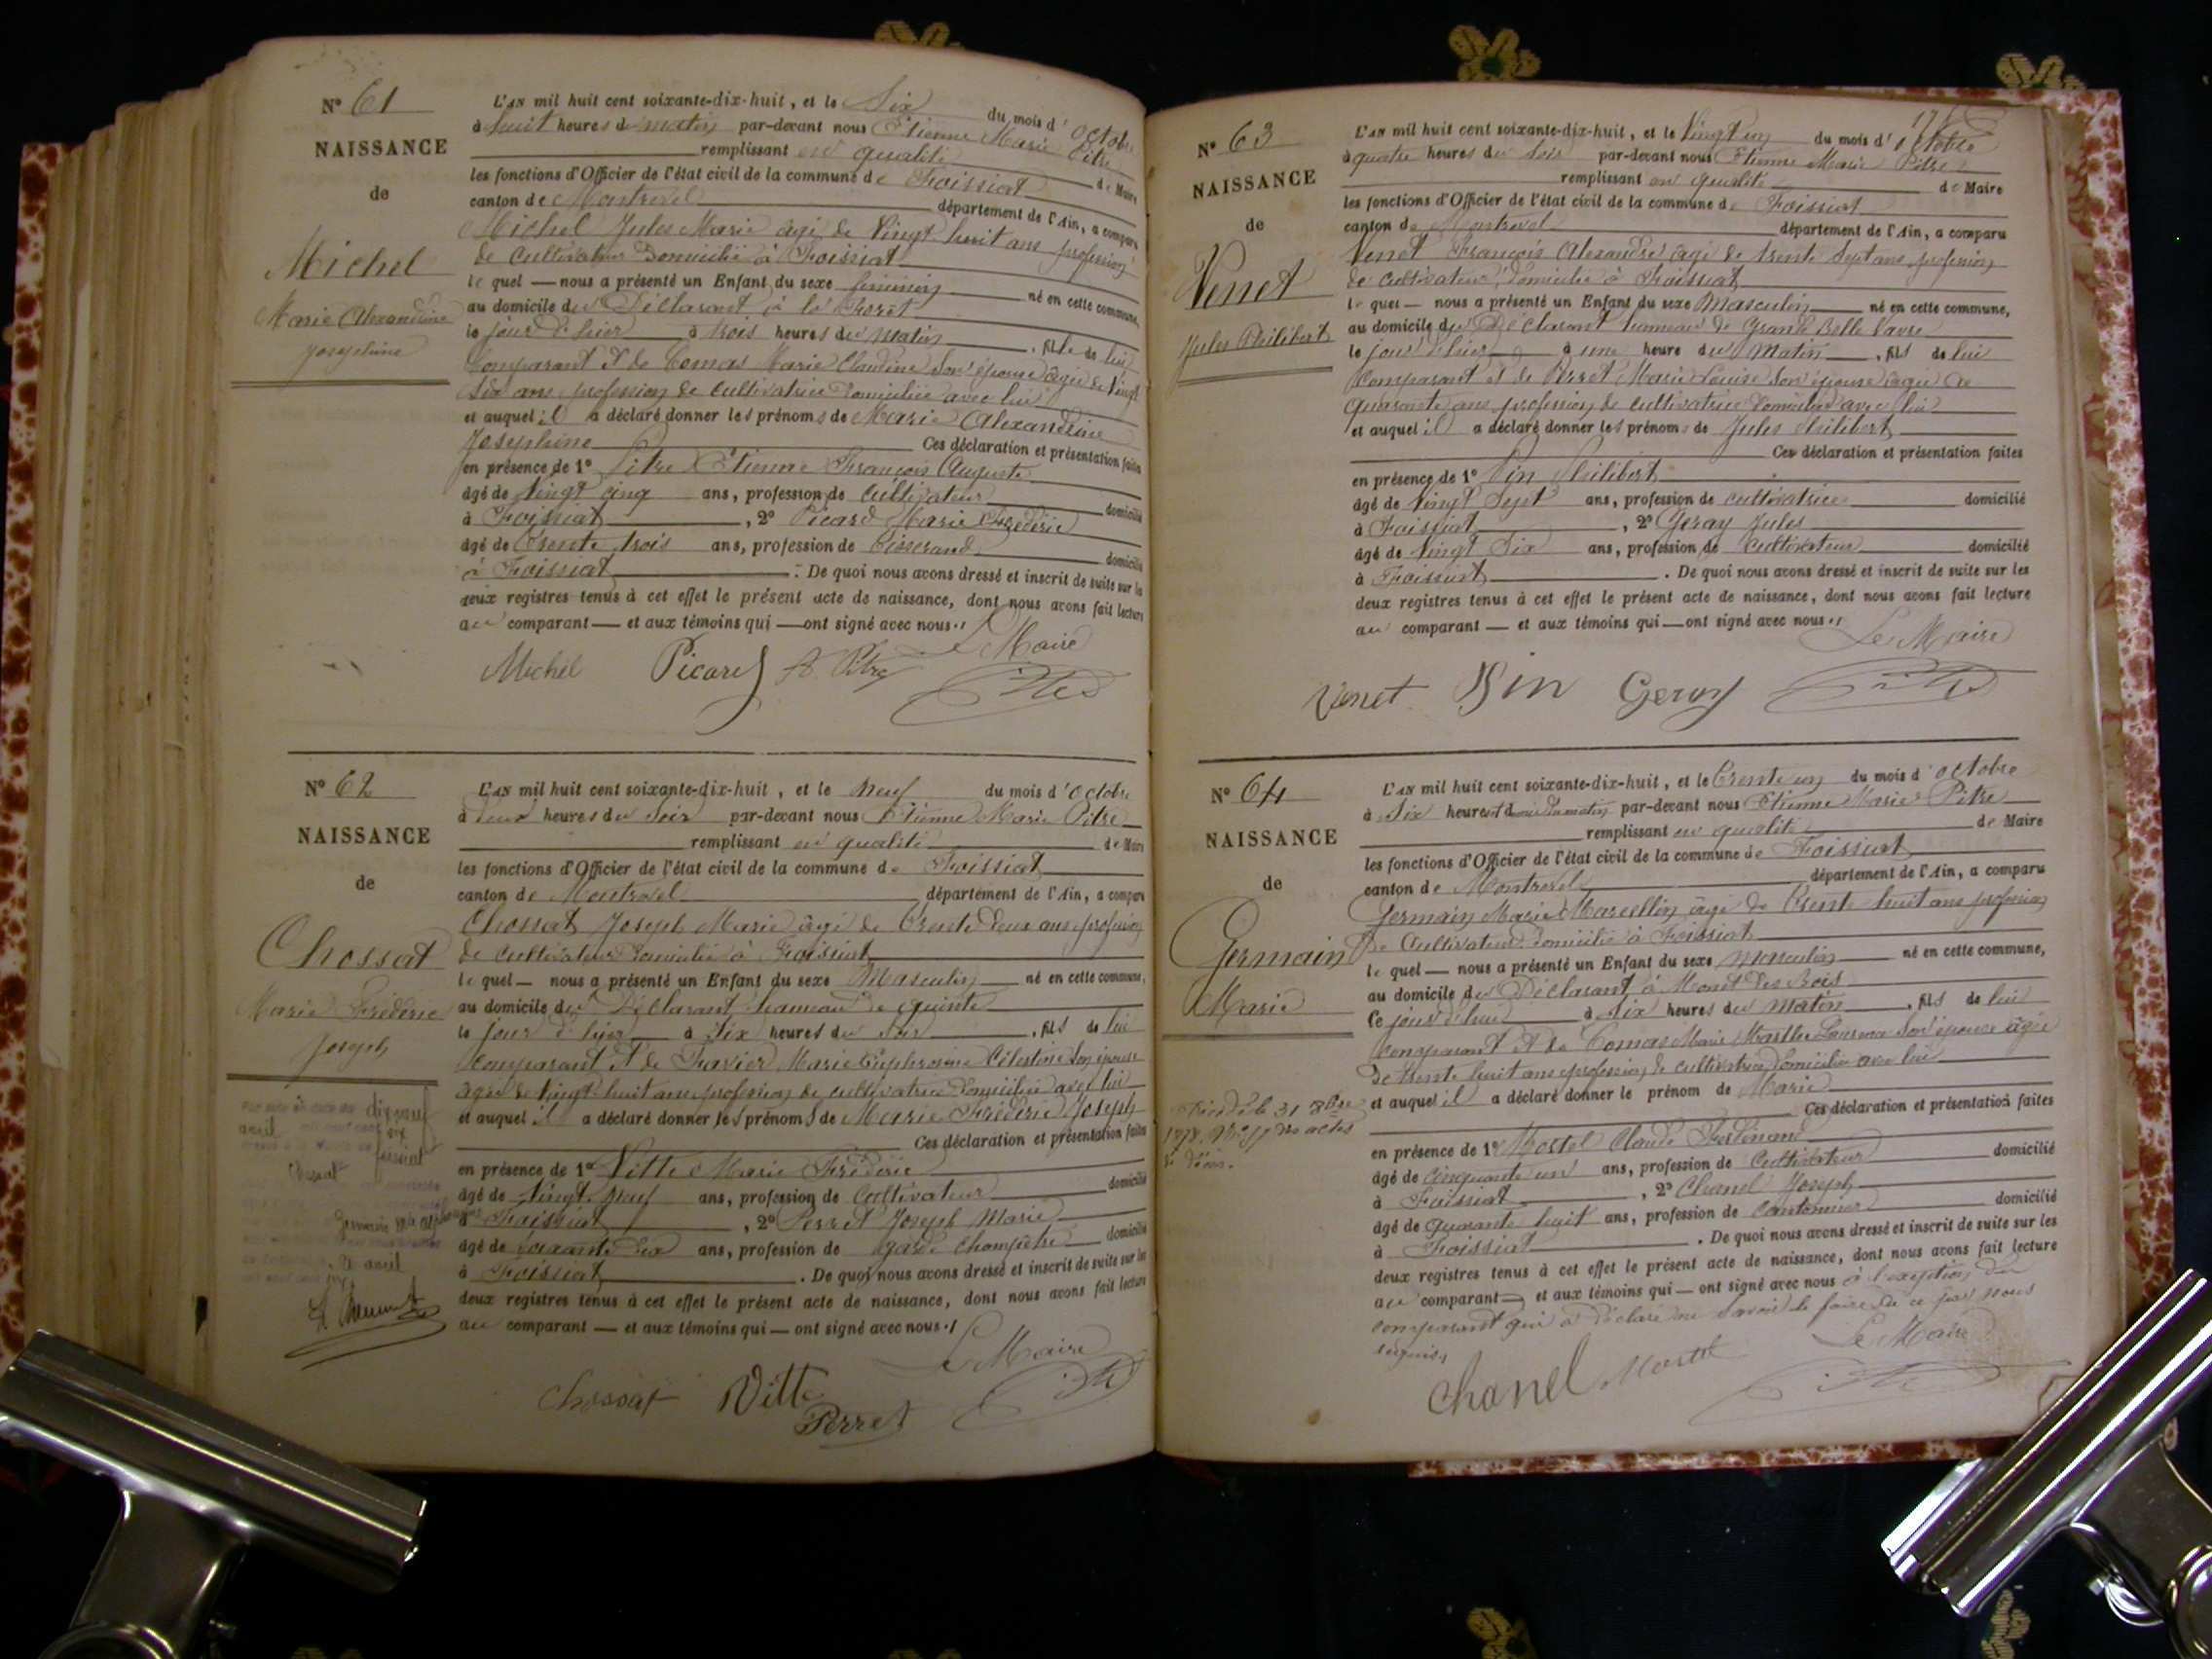 N° 61
NAISSANCE
de
Michel
Marie Alexandrine
Josephine
L'AN mil huit cent soixante-dix-huit, et le Six du mois d'octobre
à huit heures du matin par-devant nous Etienne Marie Pitre
remplissant en qualité de Maire
les fonctions d'Officier de l'état civil de la commune de Foissiat
canton de Montrevel département de l'Ain, a comparu
Michel Jules Marie âgé de Vingt huit ans profession
de cultivateur Domicilié à Foissiat
lequel — nous a présenté un Enfant du sexe féminin né en cette commune,
au domicile du Déclarant à la Forêt
le jour d'hier à trois heures du matin, fille de lui
Comparant & de Comas Marie Claudine Son épouse âgée de Vingt
Six ans profession de cultivatrice Domiciliée avec lui
et auquel il a déclaré donner les prénoms de Marie Alexandrine
Josephine Ces déclaration et présentation faites
en présence de 1° Pitre Etienne François Auguste
âgé de Vingt cinq ans, profession de Cultivateur domicilié
à Foissiat, 2° Picard Marie Frederic
âgé de Trente trois ans, profession de Tisserand domicilié
à Foissiat. De quoi nous avons dressé et inscrit de suite sur les
deux registres tenus à cet effet le présent acte de naissance, dont nous avons fait lecture
au comparant — et aux témoins qui — ont signé avec nous.
Le Maire
Michel Picard A. Pitre Pitre
N° 62
NAISSANCE
de
Chossat
Marie Frédéric
Joseph
dixneuf
avril
six
foissiat
Chossat
21 avril
L'AN mil huit cent soixante-dix-huit, et le Neuf du mois d'octobre
à deux heures du Soir par-devant nous Etienne Marie Pitre
remplissant en qualité de Maire
les fonctions d'Officier de l'état civil de la commune de Foissiat
canton de Montrevel département de l'Ain, a comparu
Chossat Joseph Marie âgé de Trente Deux ans profession
de cultivateur Domicilié à Foissiat
lequel — nous a présenté un Enfant du sexe Masculin né en cette commune,
au domicile du Déclarant hameau de Quinte
le jour d'hier à Six heures du Soir, fils de lui
Comparant et de Marie Euphrosine Célestine Son épouse
âgée de Vingt huit ans profession de cultivatrice Domiciliée avec lui
et auquel il a déclaré donner les prénoms de Marie Fréderic Joseph
Ces déclaration et présentation faites
en présence de 1° Vitte Marie Fréderic
âgé de Vingt neuf ans, profession de Cultivateur domicilié
à Foissiat, 2° Perret Joseph Marie
âgé de soixante ans, profession de garde Champêtre domicilié
à Foissiat. De quoi nous avons dressé et inscrit de suite sur les
deux registres tenus à cet effet le présent acte de naissance, dont nous avons fait lecture
au comparant — et aux témoins qui — ont signé avec nous.
Le Maire
Chossat Vitte Pitre
Perret
N° 63
NAISSANCE
de
Venet
Jules Philibert
L'AN mil huit cent soixante-dix-huit, et le Vingt un du mois d'octobre
à quatre heures du Soir par-devant nous Etienne Marie Pitre
remplissant en qualité de Maire
les fonctions d'Officier de l'état civil de la commune de Foissiat
canton de Montrevel département de l'Ain, a comparu
Venet François Alexandre âgé de trente Sept ans profession
de cultivateur domicilié à Foissiat
lequel — nous a présenté un Enfant du sexe Masculin né en cette commune,
au domicile du Déclarant hameau de Grande Belle Vavre
le jour d'hier à une heure du Matin, fils de lui
Comparant et de Perret Marie Louise Son épouse âgée de
quarante ans profession de cultivatrice Domiciliée avec lui
et auquel il a déclaré donner les prénoms de Jules Philibert
Ces déclaration et présentation faites
en présence de 1° Pin Philibert
âgé de Vingt Sept ans, profession de cultivatrice domicilié
à Foissiat, 2° Geray Jules
âgé de Vingt Six ans, profession de cultivateur domicilié
à Foissiat. De quoi nous avons dressé et inscrit de suite sur les
deux registres tenus à cet effet le présent acte de naissance, dont nous avons fait lecture
au comparant — et aux témoins qui — ont signé avec nous.
Le Maire
Venet Pin Geray Pitre
N° 64
NAISSANCE
de
Germain
Marie
Décédé le 31 8bre
1878. N° des actes
de décès.
L'AN mil huit cent soixante-dix-huit, et le Trente un du mois d'octobre
à Six heures et demie du matin par-devant nous Etienne Marie Pitre
remplissant en qualité de Maire
les fonctions d'Officier de l'état civil de la commune de Foissiat
canton de Montrevel département de l'Ain, a comparu
Germain Marie Marcellin âgé de Trente huit ans profession
de Cultivateur domicilié à Foissiat
lequel — nous a présenté un Enfant du sexe masculin né en cette commune,
au domicile du Déclarant à Mont des Bois
Ce jour d'hui à Six heures du Matin, fils de lui
comparant et de Comas Marie Marthe Laurence Son épouse âgée
de trente huit ans profession de cultivatrice Domiciliée avec lui
et auquel il a déclaré donner le prénom de Marie
Ces déclaration et présentation faites
en présence de 1° Mortel Claude Ferdinand
âgé de Cinquante un ans, profession de Cultivateur domicilié
à Foissiat, 2° Chanel Joseph
âgé de quarante huit ans, profession de Cantonnier domicilié
à Foissiat. De quoi nous avons dressé et inscrit de suite sur les
deux registres tenus à cet effet le présent acte de naissance, dont nous avons fait lecture
au comparant — et aux témoins qui — ont signé avec nous à l'exception du
comparant qui a déclaré ne savoir le faire de ce par nous
requis,
Le Maire
Chanel Mortel Pitre